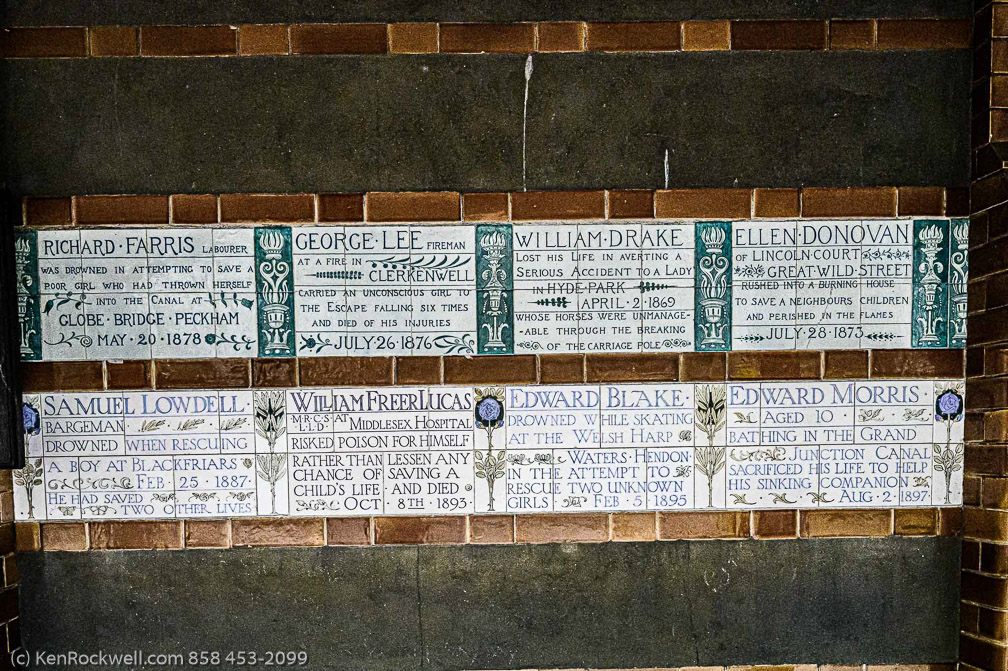 RICHARD·FARRIS LABOURER
WAS DROWNED IN ATTEMPTING TO SAVE A
POOR GIRL WHO HAD THROWN HERSELF
INTO THE CANAL AT
GLOBE·BRIDGE·PECKHAM
MAY·20·1878
GEORGE·LEE FIREMAN
AT A FIRE IN
CLERKENWELL
CARRIED AN UNCONSCIOUS GIRL TO
THE ESCAPE FALLING SIX TIMES
AND DIED OF HIS INJURIES
JULY·26·1876
WILLIAM·DRAKE
LOST HIS LIFE IN AVERTING A
SERIOUS ACCIDENT TO A LADY
IN HYDE·PARK
APRIL·2·1869
WHOSE HORSES WERE UNMANAGE-
-ABLE THROUGH THE BREAKING
OF THE CARRIAGE POLE
ELLEN·DONOVAN
OF LINCOLN·COURT
GREAT·WILD·STREET
RUSHED INTO A BURNING HOUSE
TO SAVE A NEIGHBOURS CHILDREN
AND PERISHED IN THE FLAMES
JULY·28·1873
SAMUEL LOWDELL
BARGEMAN
DROWNED WHEN RESCUING
A BOY AT BLACKFRIARS
FEB·25·1887·
HE HAD SAVED TWO OTHER LIVES
WILLIAM FREER LUCAS
M·R·C·S· L·L·D AT MIDDLESEX HOSPITAL
RISKED POISON FOR HIMSELF
RATHER THAN LESSEN ANY
CHANCE OF SAVING A
CHILD'S LIFE · AND DIED
OCT·8TH·1893·
EDWARD BLAKE·
DROWNED WHILE SKATING
AT THE WELSH HARP
WATERS·HENDON·
IN THE ATTEMPT TO
RESCUE TWO UNKNOWN
GIRLS FEB·5·1895
EDWARD MORRIS·
AGED 10
BATHING IN THE GRAND
JUNCTION CANAL
SACRIFICED HIS LIFE TO HELP
HIS SINKING COMPANION
AUG·2·1897·
(c) KenRockwell.com 858 453-2099